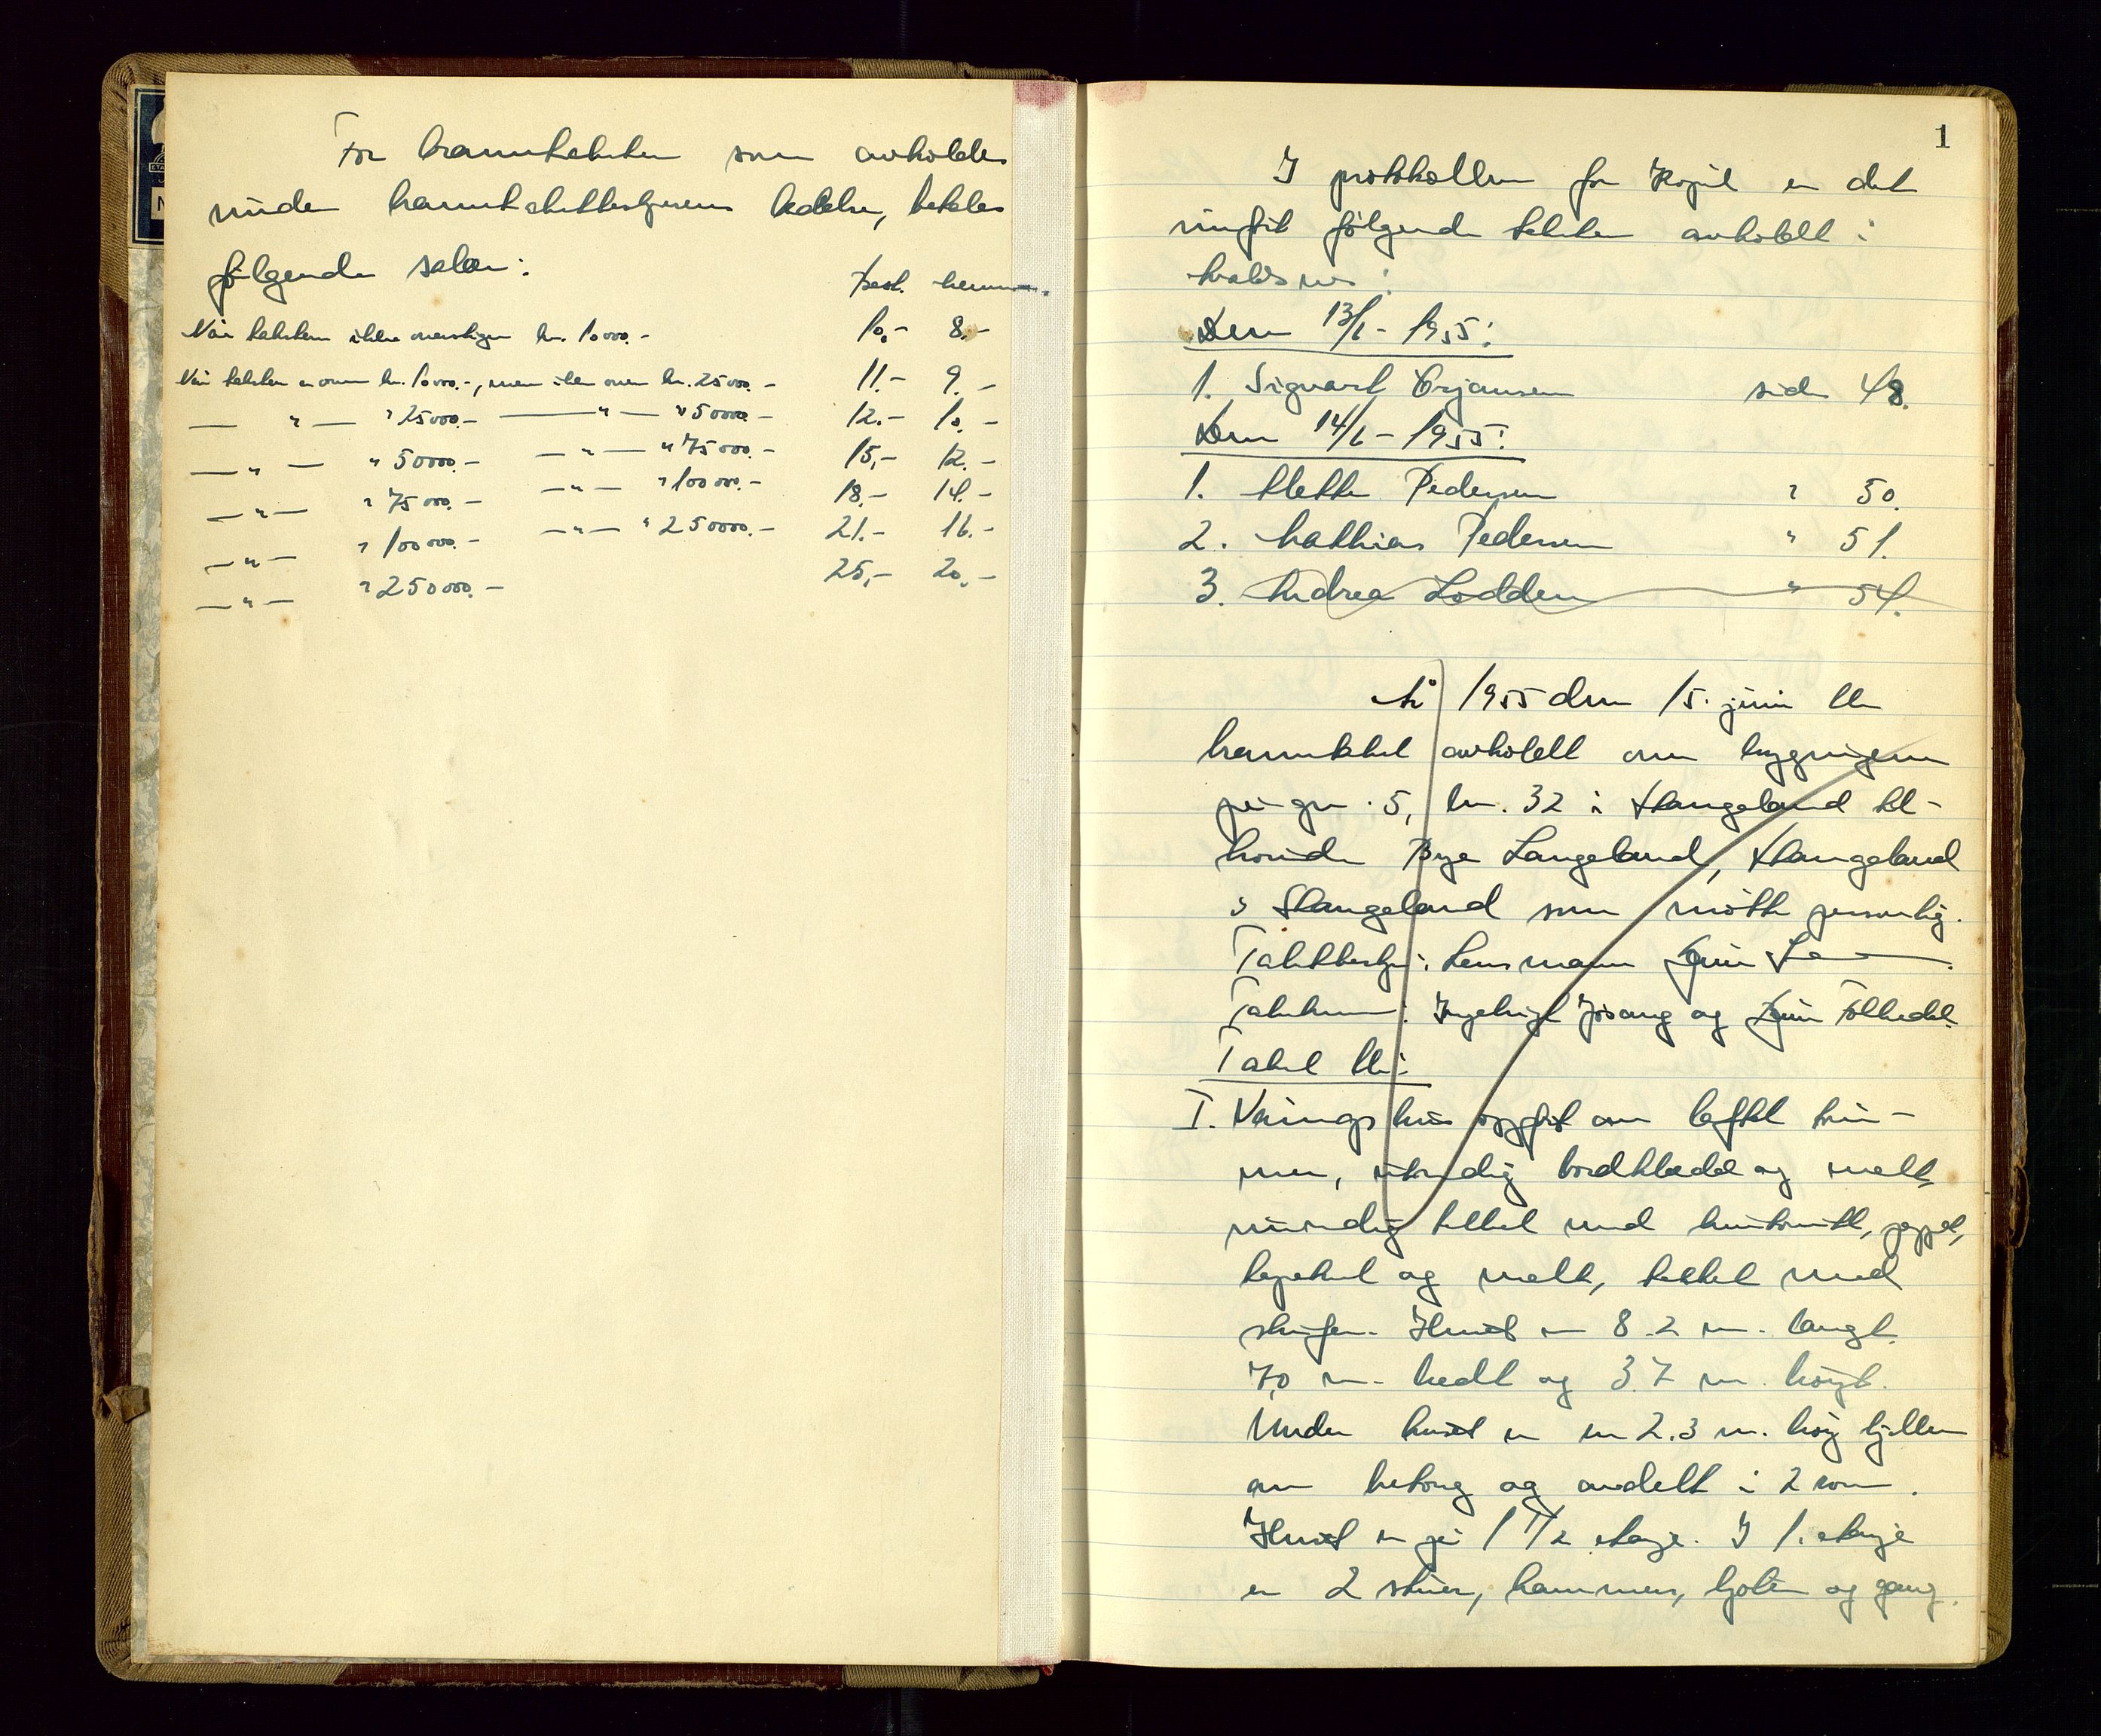 For branntakster som avholdes
under branntakstbestyrerens ledelse, betales
følgende salær:
Best. menn.
Når taksten ikke overstiger kr. 10000.- 10,- 8.-
Når taksten er over kr. 10000.-, men ikke over kr. 25000.- 11.- 9.-
— " — " 25000.- — " — " 50000.- 12.- 10.-
— " — " 50000.- — " — " 75000.- 15,- 12.-
— " — " 75000.- — " — " 100000.- 18.- 14.-
— " — " 100000.- — " — " 250000.- 21.- 16.-
— " — " 250000.- 25,- 20,-
1
I protokollen for er det
innført følgende takster avholdt i
Den 13/6 - 1955:
1. Sigvart Ørjansen side 48.
Den 14/6 - 1955:
1. Mette Pedersen " 50.
2. Mathias Pedersen " 51.
3. Andrea Lodden " 54.
År 1955 den 15. juni ble
branntakst avholdt over bygningene
på gnr. 5, bnr. 32 i Stangeland til-
hørende Langeland, Stangeland
Stangeland som møtte personlig.
Takstbestyr: Lensmann
Takstmenn: Ingebrigt Jøsang og
Takst ble:
I. Våningshus oppført av laftet tøm-
mer, utvendig bordkledd og malt,
innvendig tekket med huntonitt, papp,
tapetsert og malt, tekket med
skifer. Huset er 8.2 m. langt.
7,0 m. bredt og 3.7 m. høyt.
Under huset er en 2.3 m. høy kjeller
av betong og avdelt i 2 rom.
Huset er på 1 1/2 etasje. I 1. etasje
er 2 stuer, kammer, kjøken og gang.